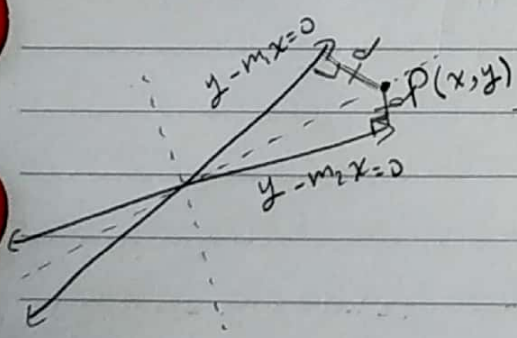 y-m₁x=0
d
P(x,y)
d
y-m₂x=0